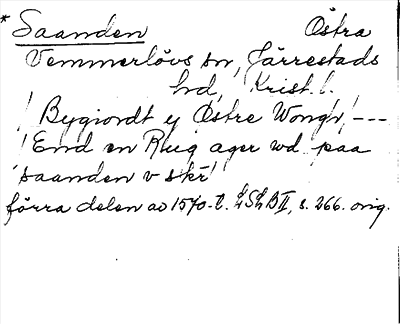 * Saanden Östra
Vemmerlövs sn, Järrestads
hd, Krist. l.
! Bygiordt y Østre Wong'r, ---
! End en Rug ager wd paa
'saanden v skr'
förra delen av 1570-t. LSkB II, s. 266. orig.